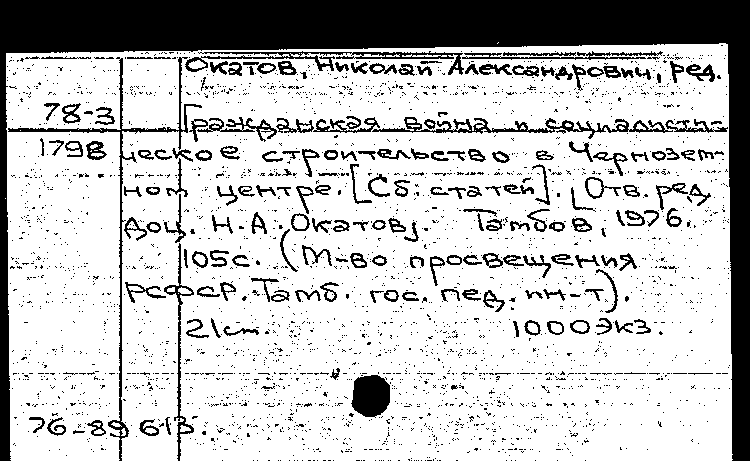 Окатов, Николай Александрович, ред.
78-3 Гражданская война и социалисти-
1798 ческое строительство в Чернозем-
ном центре. [Сб. статей]. [Отв. ред.
доц. Н.А. Окатов]. Тамбов, 1976.
105с. (М-во просвещения
РСФСР. Тамб. гос. пед. ин-т).
21см. 1000экз.
76-89613.